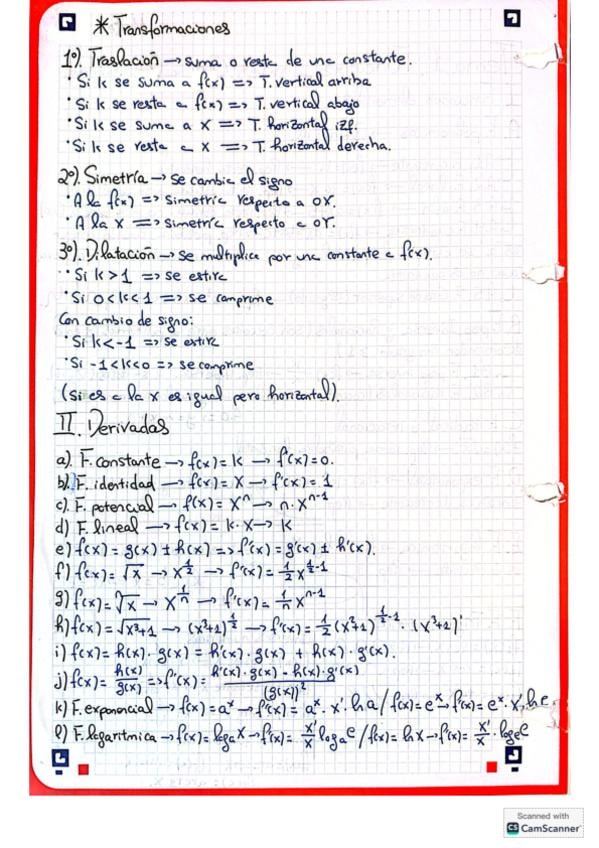 * Transformaciones
1º). Traslación → suma o resta de una constante.
· Si k se suma a f(x) => T. vertical arriba
· Si k se resta a f(x) => T. vertical abajo
· Si k se suma a x => T. horizontal izq.
· Si k se resta a x => T. horizontal derecha.
2º). Simetría → Se cambia el signo
· A la f(x) => Simetria respecto a OX.
· A la x => Simetría respecto a OY.
3º). Dilatación → Se multiplica por una constante a f(x).
· Si k > 1 => se estira
· Si 0<k<1 => se comprime
Con cambio de signo:
· Si k<-1 => se estira
· Si -1<k<0 => se comprime
(Si es a la x es igual pero horizontal).
II. Derivadas
a). F. constante → f(x)= k → f'(x)=0.
b). F. identidad → f(x)= x → f'(x)= 1
c). F. potencial → f(x)= xⁿ → n·xⁿ⁻¹
d) F. lineal → f(x)= k·x → k
e) f(x)= g(x) ± h(x) => f'(x)= g'(x) ± h'(x).
f) f(x)= √x → x^(1/2) → f'(x)= 1/2 x^(1/2-1)
g) f(x)= ⁿ√x → x^(1/n) → f'(x)= 1/n x^(n-1)
h) f(x)= √(x³+1) → (x³+1)^(1/2) → f'(x)= 1/2 (x³+1)^(1/2-1) · (x³+1)'
i) f(x)= h(x) · g(x) = h'(x) · g(x) + h(x) · g'(x).
j) f(x)= h(x)/g(x) => f'(x)= h'(x)·g(x) - h(x)·g'(x)/(g(x))²
k) F. exponencial → f(x)= aˣ → f'(x)= aˣ · x' · ln a / f(x)= eˣ → f'(x)= eˣ · x' · ln e
l) F. logarítmica → f(x)= logₐx → f'(x)= x'/x logₐe / f(x)= ln x → f'(x)= x'/x · logₑe
Scanned with
CS CamScanner